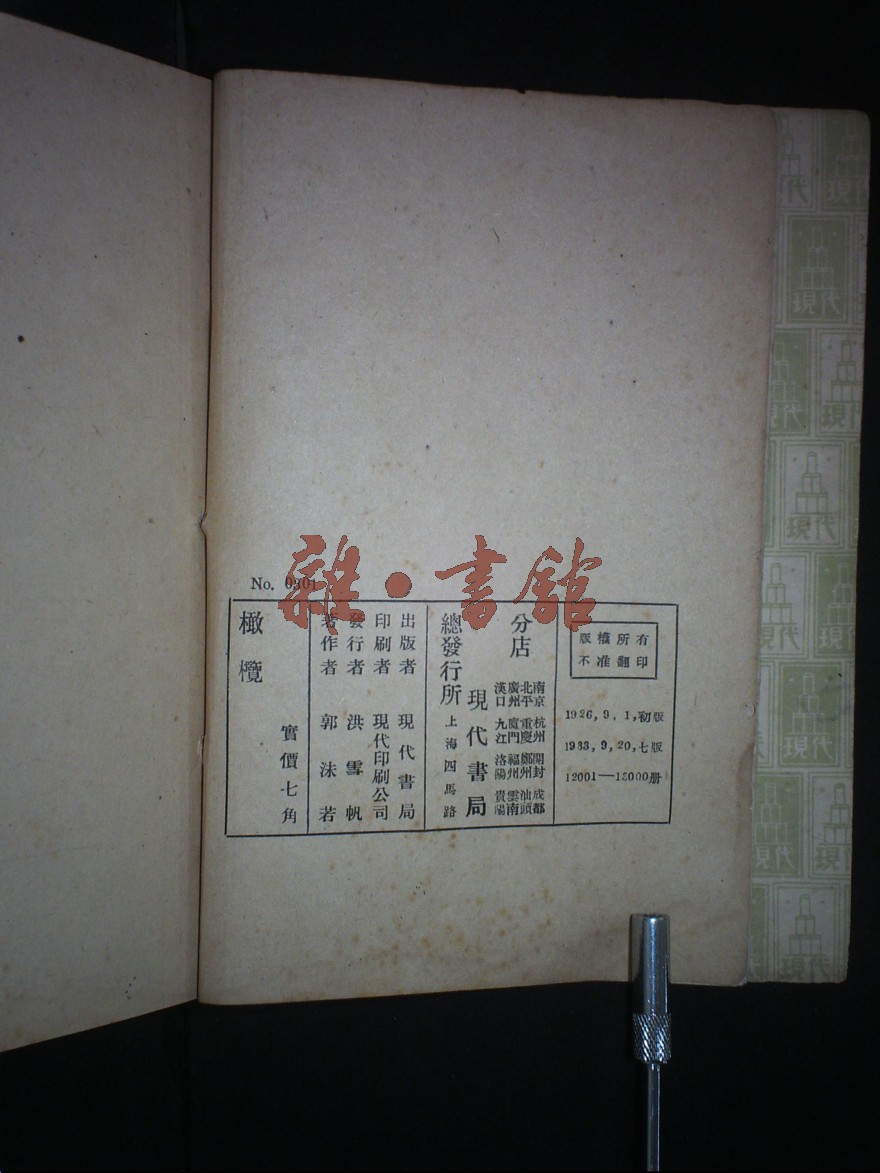 雜·書館
No. 0301
版權所有
不准翻印
1926, 9, 1, 初版
1933, 9, 20, 七版
12001—13000册
分店
南京 杭州 開封 成都
北平 重慶 鄭州 汕頭
廣州 廈門 福州 雲南
漢口 九江 洛陽 貴陽
現代書局
總發行所 上海四馬路
出版者 現代書局
印刷者 現代印刷公司
發行者 洪雪帆
著作者 郭沫若
實價七角
橄欖